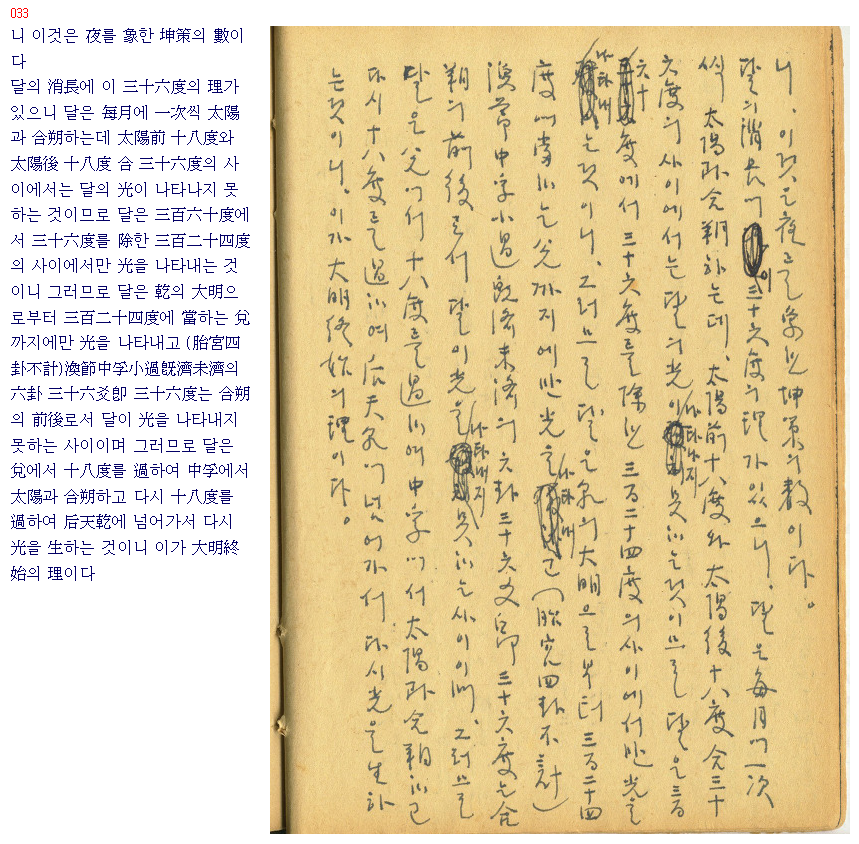 033
니 이것은 夜를 象한 坤策의 數이
다
달의 消長에 이 三十六度의 理가
있으니 달은 每月에 一次씩 太陽
과 合朔하는데 太陽前 十八度와
太陽後 十八度 合 三十六度의 사
이에서는 달의 光이 나타나지 못
하는 것이므로 달은 三百六十度에
서 三十六度를 除한 三百二十四度
의 사이에서만 光을 나타내는 것
이니 그러므로 달은 乾의 大明으
로부터 三百二十四度에 當하는 兌
까지에만 光을 나타내고 (胎宮四
卦不計)渙節中孚小過旣濟未濟의
六卦 三十六爻卽 三十六度는 合朔
의 前後로서 달이 光을 나타내지
못하는 사이이며 그러므로 달은
兌에서 十八度를 過하여 中孚에서
太陽과 合朔하고 다시 十八度를
過하여 后天乾에 넘어가서 다시
光을 生하는 것이니 이가 大明終
始의 理이다
니、이것은 夜를 象한 坤策의 數이다。
달의 消長에 이 三十六度의 理가 있으니、달은 每月에 一次
씩 太陽과 合朔하는데、太陽前十八度와 太陽後十八度 合 三十
六度의 사이에서는 달의 光이 나타나지 못하는 것이므로 달은 三百
六十度에서 三十六度를 除한 三百二十四度의 사이에서만 光을
나타내는 것이니、그러므로 달은 乾의 大明으로부터 三百二十四
度에 當하는 兌까지에만 光을 나타내고(胎宮四卦不計)
渙節中孚小過旣濟未濟의 六卦 三十六爻卽 三十六度는 合
朔의 前後로서 달이 光을 나타내지 못하는 사이이며、그러므로
달은 兌에서 十八度를 過하여 中孚에서 太陽과 合朔하고
다시 十八度를 過하여 后天乾에 넘어가서 다시 光을 生하
는 것이니、이가 大明終始의 理이다。